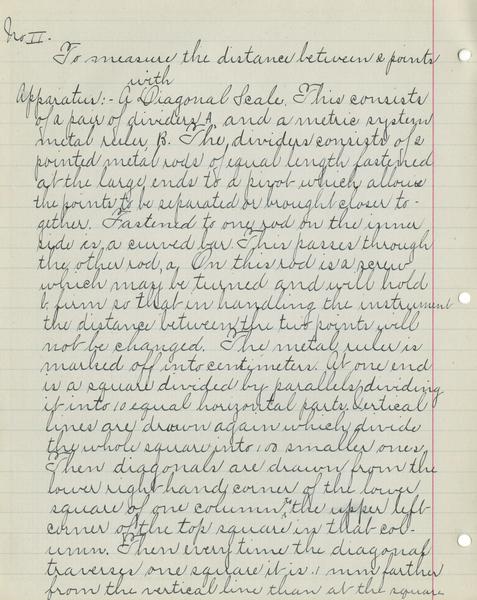 No II.
To measure the distance between 2 points
with
Apparatus:- A Diagonal Scale. This consists
of a pair of dividers, A, and a metric system
metal ruler, B. The, dividers consists of 2
pointed metal rods of equal length fastened
at the large ends to a pivot which allows
the points to be separated or brought closer to-
gether. Fastened to one rod on the inner
side is a curved bar. This passes through
the other rod, a. On this rod is a screw
which may be turned and will hold
b. firm so that in handling the instrument
the distance between the two points will
not be changed. The metal ruler is
marked off into centimeters. At one end
is a square divided by parallels, dividing
it into 10 equal horizontal parts. Vertical
lines are drawn again which divide
the whole square into 100 smaller ones.
Then diagonals are drawn from the
lower right hand corner of the lower
square of one column, to the upper left
corner of the top square in that col-
umn. Then every time the diagonal
traverses one square it is .1 mm farther
from the vertical line than at the square